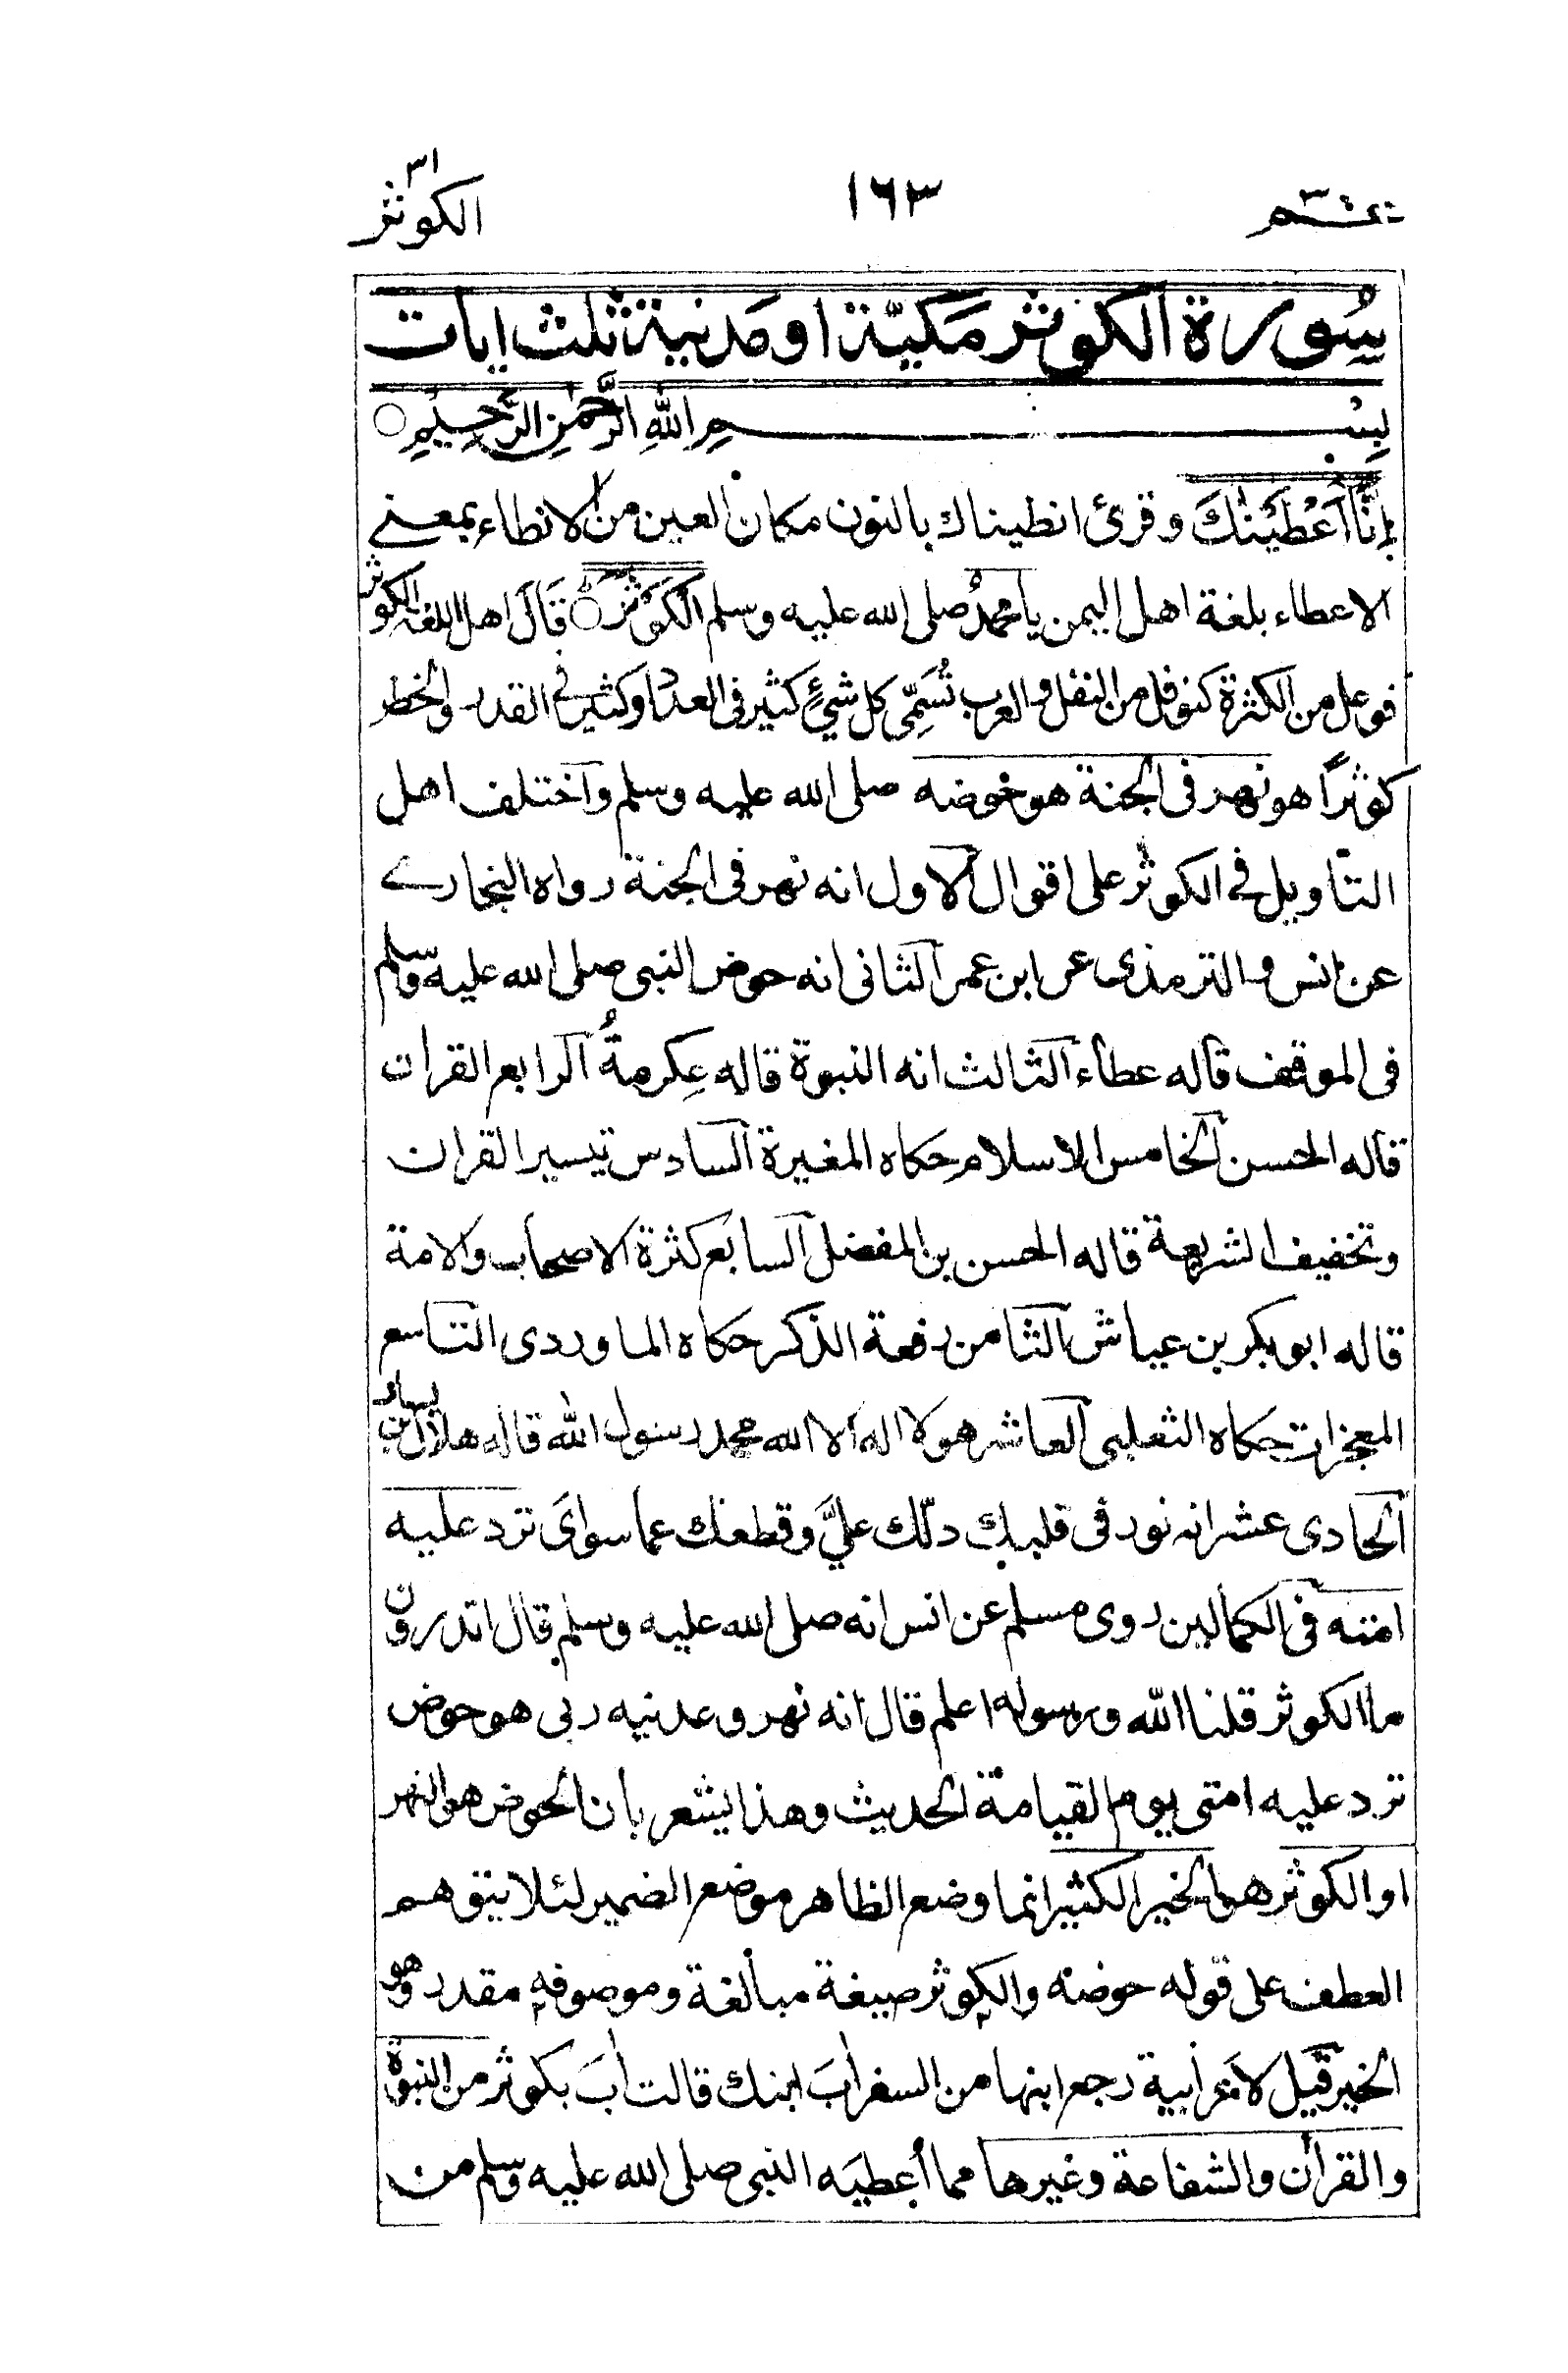 عم ٣٠ ١٦٣ الكوثر ٣١
سُورة الكوثر مَكيّة او مَدنية ثلث ايات
بِسْمِ اللهِ الرَّحْمٰنِ الرَّحِيْمِ ○
اِنَّا اَعْطَيْنٰكَ وقرئ انطيناك بالنون مكان العين من الانطاء بمعنے
الاعطاء بلغة اهل اليمن يا محمدُ صلى الله عليه وسلم الْكَوْثَرَ ○ قَالَ اهل اللغة الكوثر
فوعل من الكثرة كنوفل من النفل والعرب تُسَمِّى كل شئٍ كثير فى العدد او كثير فے القدر والخطر
كوثرًا هو نهر فى الجنة هو حوضه صلى الله عليه وسلم واختلف اهل
التأويل فے الكوثر على اقوال الاول انه نهر فى الجنة رواه البخارے
عن انس والترمذى عن ابن عمر الثانى انه حوض النبى صلى الله عليه وسلم
فى الموقف قاله عطاء الثالث انه النبوة قاله عِكرمةُ الرابع القرآن
قاله الحسن الخامس الاسلام حكاه المغيرة السادس تيسير القرآن
وتخفيف الشريعة قاله الحسن بن المفضل السابع كثرة الاصحاب والامة
قاله ابو بكر بن عياش الثامن رفعة الذكر حكاه الماوردى التاسع
المعجزات حكاه الثعلبى العاشر هو لا اله الا الله محمد رسول الله قاله هلال بن يساف
الحادى عشر انه نور فى قلبك دلّك علىَّ وقطعك عما سواىَ ترد عليه
امته فى الكمالين روى مسلم عن انس انه صلى الله عليه وسلم قال اتدرون
ما الكوثر قلنا الله ورسوله اعلم قال انه نهر وعدنيه ربى هو حوض
ترد عليه امتى يوم القيامة الحديث وهذا يشعر بأن الحوض هو النهر
او الكوثر هو الخير الكثير انما وضع الظاهر موضع الضمير لئلا يتوهم
العطف على قوله حوضه والكوثر صيغة مبالغة وموصوفه مقدر وهو
الخير قيل لاعرابية رجع ابنها من السفر اٰبَ ابنك قالت اٰبَ بكوثر من النبوة
والقراٰن والشفاعة وغيرها مما اُعطيَه النبى صلى الله عليه وسلم من